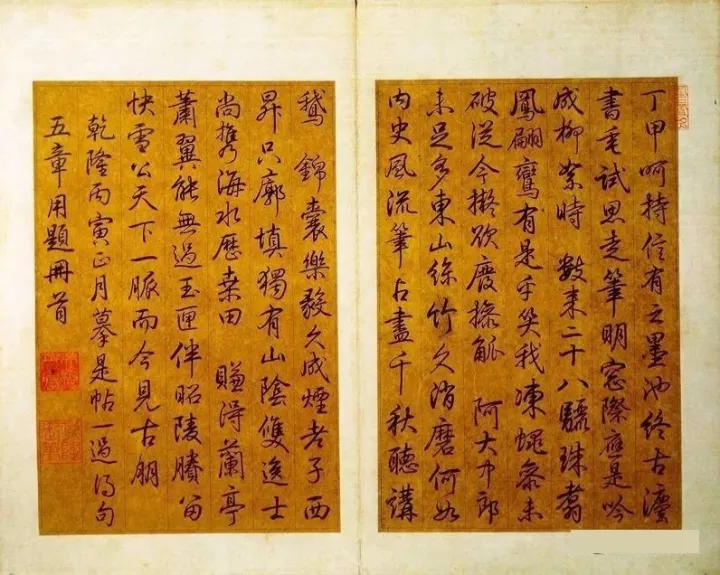 丁甲呵持信有之墨池終古灋
書垂試思走筆明窗際應是吟
成柳絮時 數來二十八驪珠翥
鳳翩鸞有是乎笑我凍蠅參未
破從今擬欲廢操觚 阿大中郎
未足多東山絲竹久消磨何如
內史風流筆占盡千秋聽講
鵝 錦囊樂毅久成煙老子西
昇只廓填獨有山陰雙逸士
尚攜海水歷桑田 賺得蘭亭
蕭翼能無過玉匣伴昭陵賸留
快雪公天下一脈而今見古朋
乾隆丙寅正月摹是帖一過得句
五章用題冊首